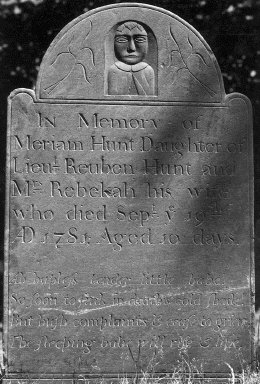 In Memory of
Meriam Hunt Daughter of
Lieut. Reuben Hunt and
Mrs. Rebekah his wife
who died Sepr. ye 19th
AD 1781. Aged 10 days.
tender little babe
So soon to
But hush complaints
The sleeping babe will rise &